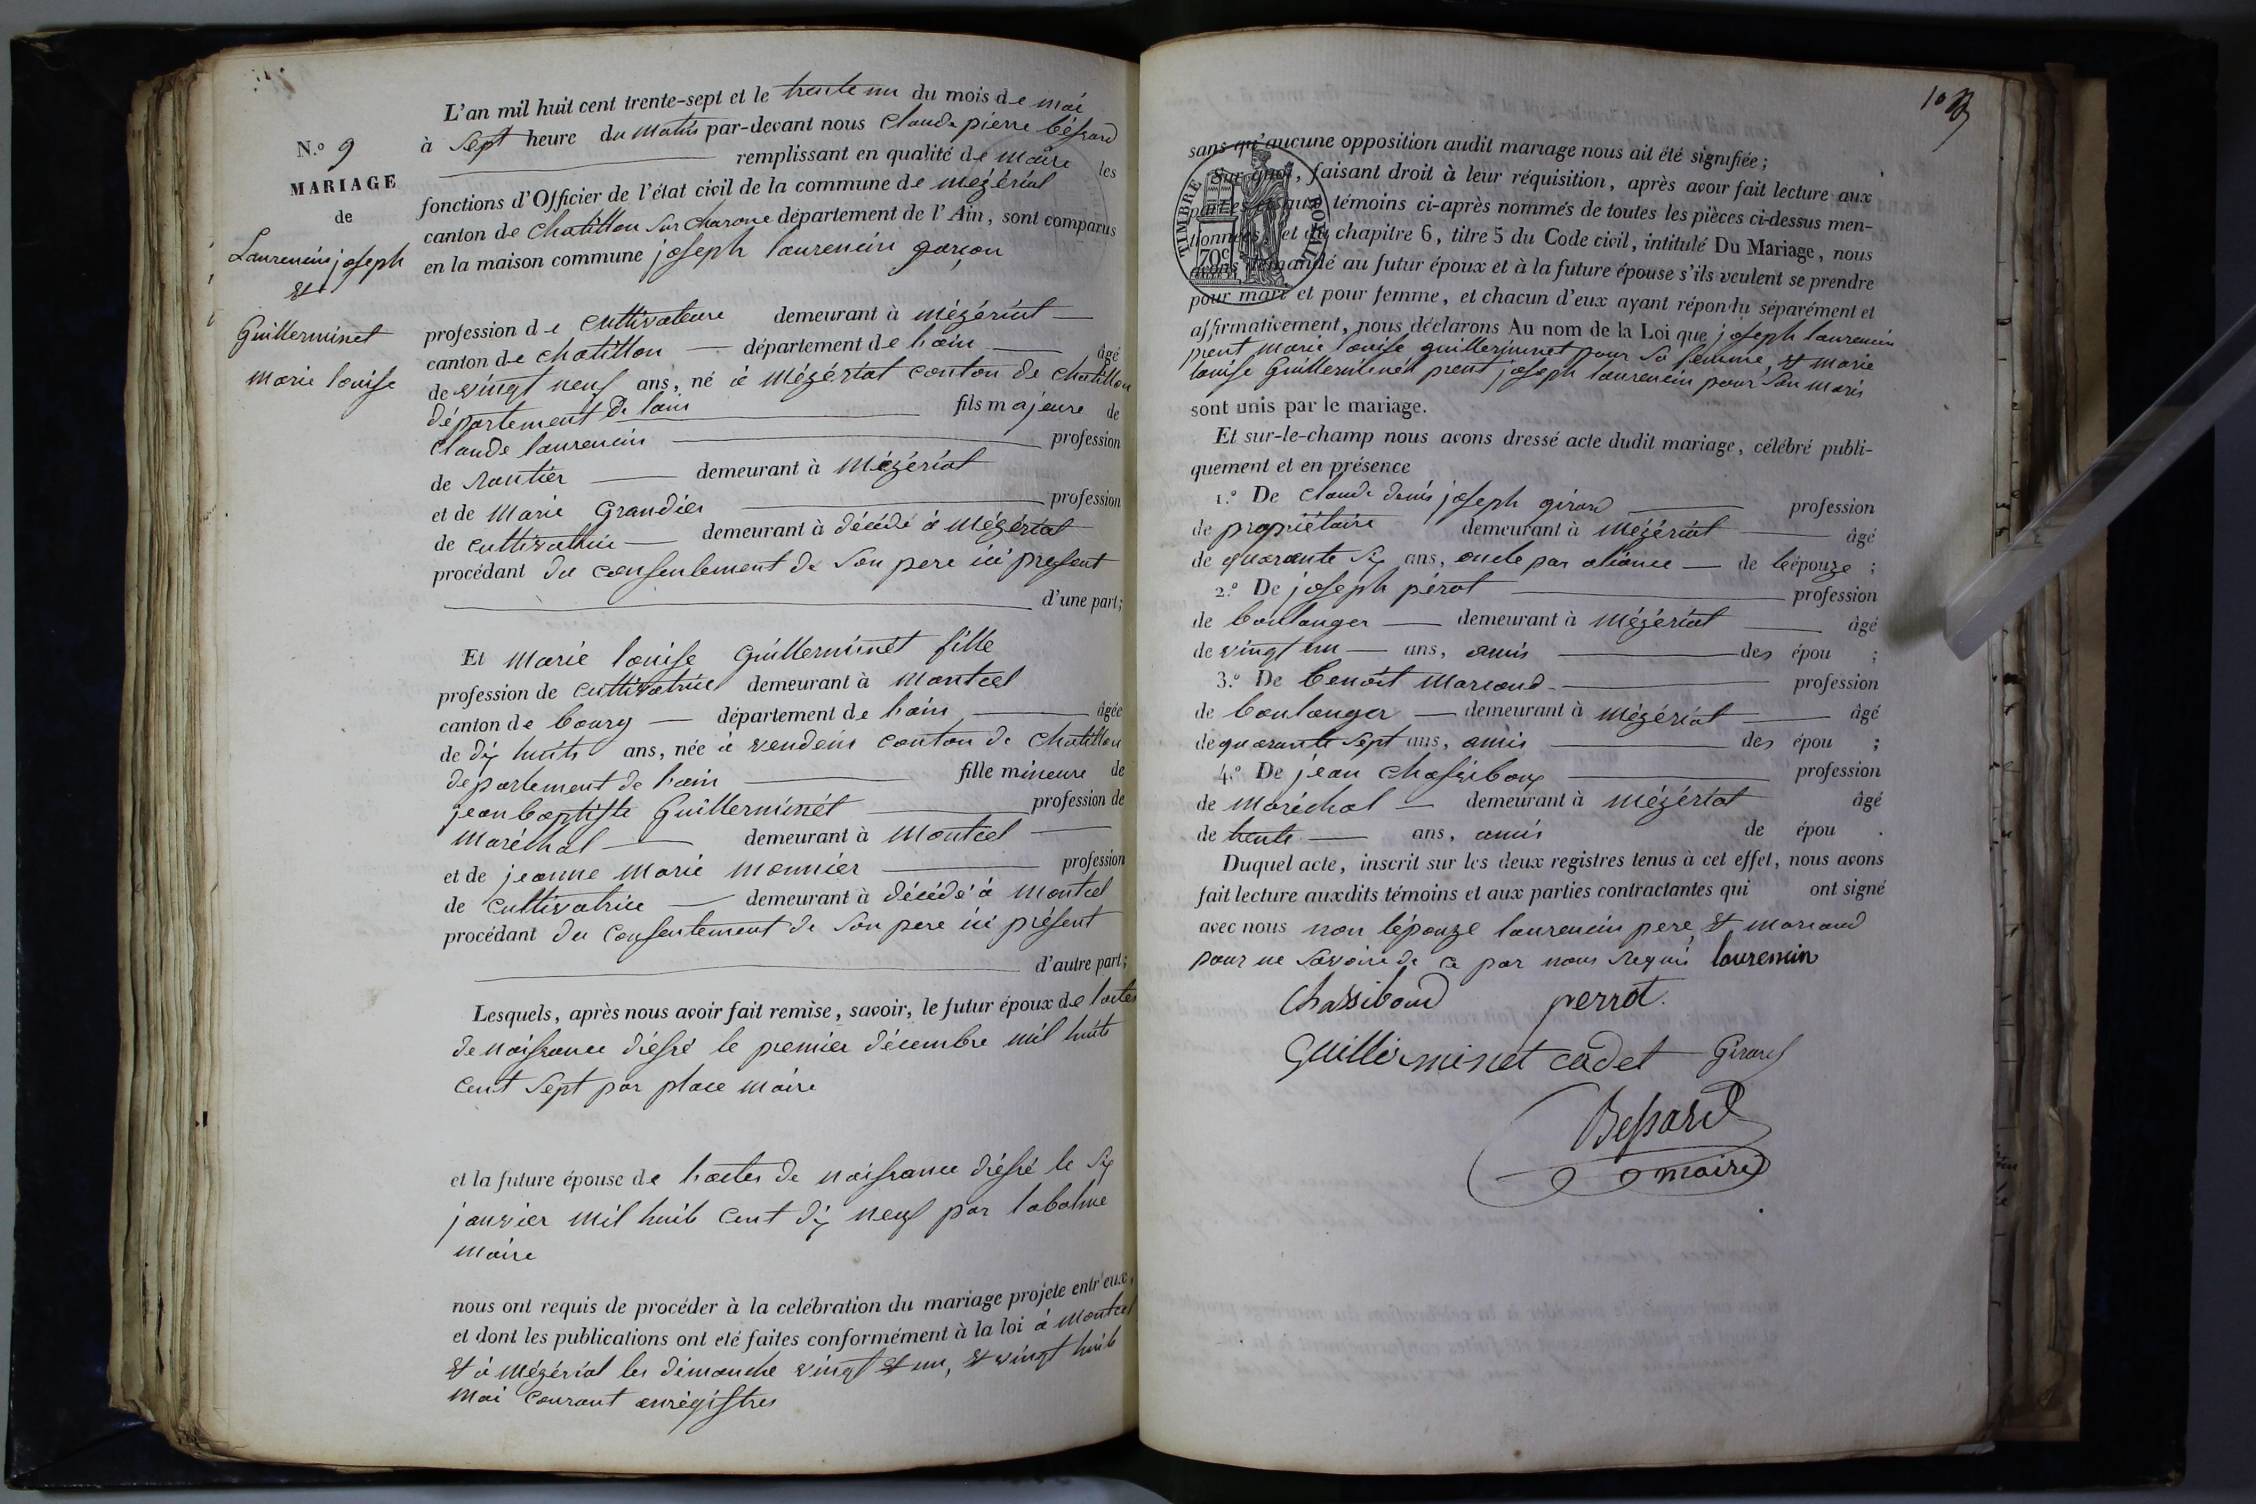 N.o 9
MARIAGE
de
Laurencin joseph
et
Guillerminet
marie louise
L'an mil huit cent trente-sept et le trente un du mois de mai
à sept heure du matin par-devant nous Claude pierre béssard
remplissant en qualité de maire les
fonctions d'Officier de l'état civil de la commune de mezériat
canton de Chatillon sur charone département de l'Ain, sont comparus
en la maison commune joseph laurencin garçon
profession de cultivateure demeurant à mézériat
canton de chatillon département de l'ain âgé
de vingt neuf ans, né à mézériat canton de chatillon
département de l'ain fils majeure de
Claude laurencin profession
de rantier demeurant à mézériat
et de marie Grandier profession
de cultivatrice demeurant à décédé à mézériat
procédant du consentement de son pere ici present
d'une part;
Et marie louise Guillerminet fille
profession de cultivatrice demeurant à montcel
canton de bourg département de l'ain âgée
de dix huits ans, née à vendeins canton de chatillon
departement de l'ain fille mineure de
jean baptiste Guillerminét profession de
maréchal demeurant à montcel
et de jeanne marie monnier profession
de cultivatrice demeurant à décédé à montcel
procédant du consentement de son pere ici présent
d'autre part;
Lesquels, après nous avoir fait remise, savoir, le futur époux de l'actes
de naissance diéssé le premier décembre mil huits
cent sept par place maire
et la future épouse de l'actes de naissance diéssé le six
janvier mil huit cent dix neuf par labalme
maire
nous ont requis de procéder à la celébration du mariage projeté entr'eux,
et dont les publications ont été faites conformément à la loi à montcel
et à mézériat les dimanche vingt et un, et vingt huit
mai courant enrégistres
sans qu'aucune opposition audit mariage nous ait été signifiée;
Sur quoi, faisant droit à leur réquisition, après avoir fait lecture aux
parties et aux témoins ci-après nommés de toutes les pièces ci-dessus men-
tionnées, et du chapitre 6, titre 5 du Code civil, intitulé Du Mariage, nous
avons demandé au futur époux et à la future épouse s'ils veulent se prendre
pour mari et pour femme, et chacun d'eux ayant répondu séparément et
affirmativement, nous déclarons Au nom de la Loi que joseph laurencin
prent marie louise guillerminet pour sa femme, et marie
louise Guillerminét prent joseph laurencin pour son maris
sont unis par le mariage.
Et sur-le-champ nous avons dressé acte dudit mariage, célébré publi-
quement et en présence
1.o De Claude denis joseph girard profession
de propriétaire demeurant à mézériat âgé
de quarante six ans, oncle par aliance de l'épouze ;
2.o De joseph pérot profession
de boulanger demeurant à mézériat âgé
de vingt un ans, amis des épou ;
3.o De benoit marcand profession
de boulanger demeurant à mézériat âgé
de quarante sept ans, amis des épou ;
4.o De jean chassiboux profession
de maréchal demeurant à mézériat âgé
de trente ans, amis de épou .
Duquel acte, inscrit sur les deux registres tenus à cet effet, nous avons
fait lecture auxdits témoins et aux parties contractantes qui ont signé
avec nous non l'épouze laurencin pere et marcand
pour ne savoire de ce par nous requis laurencin
Chassiboud perrot.
Guillerminet cadet Girard
Bessard
maire
TIMBRE ROYAL
70c